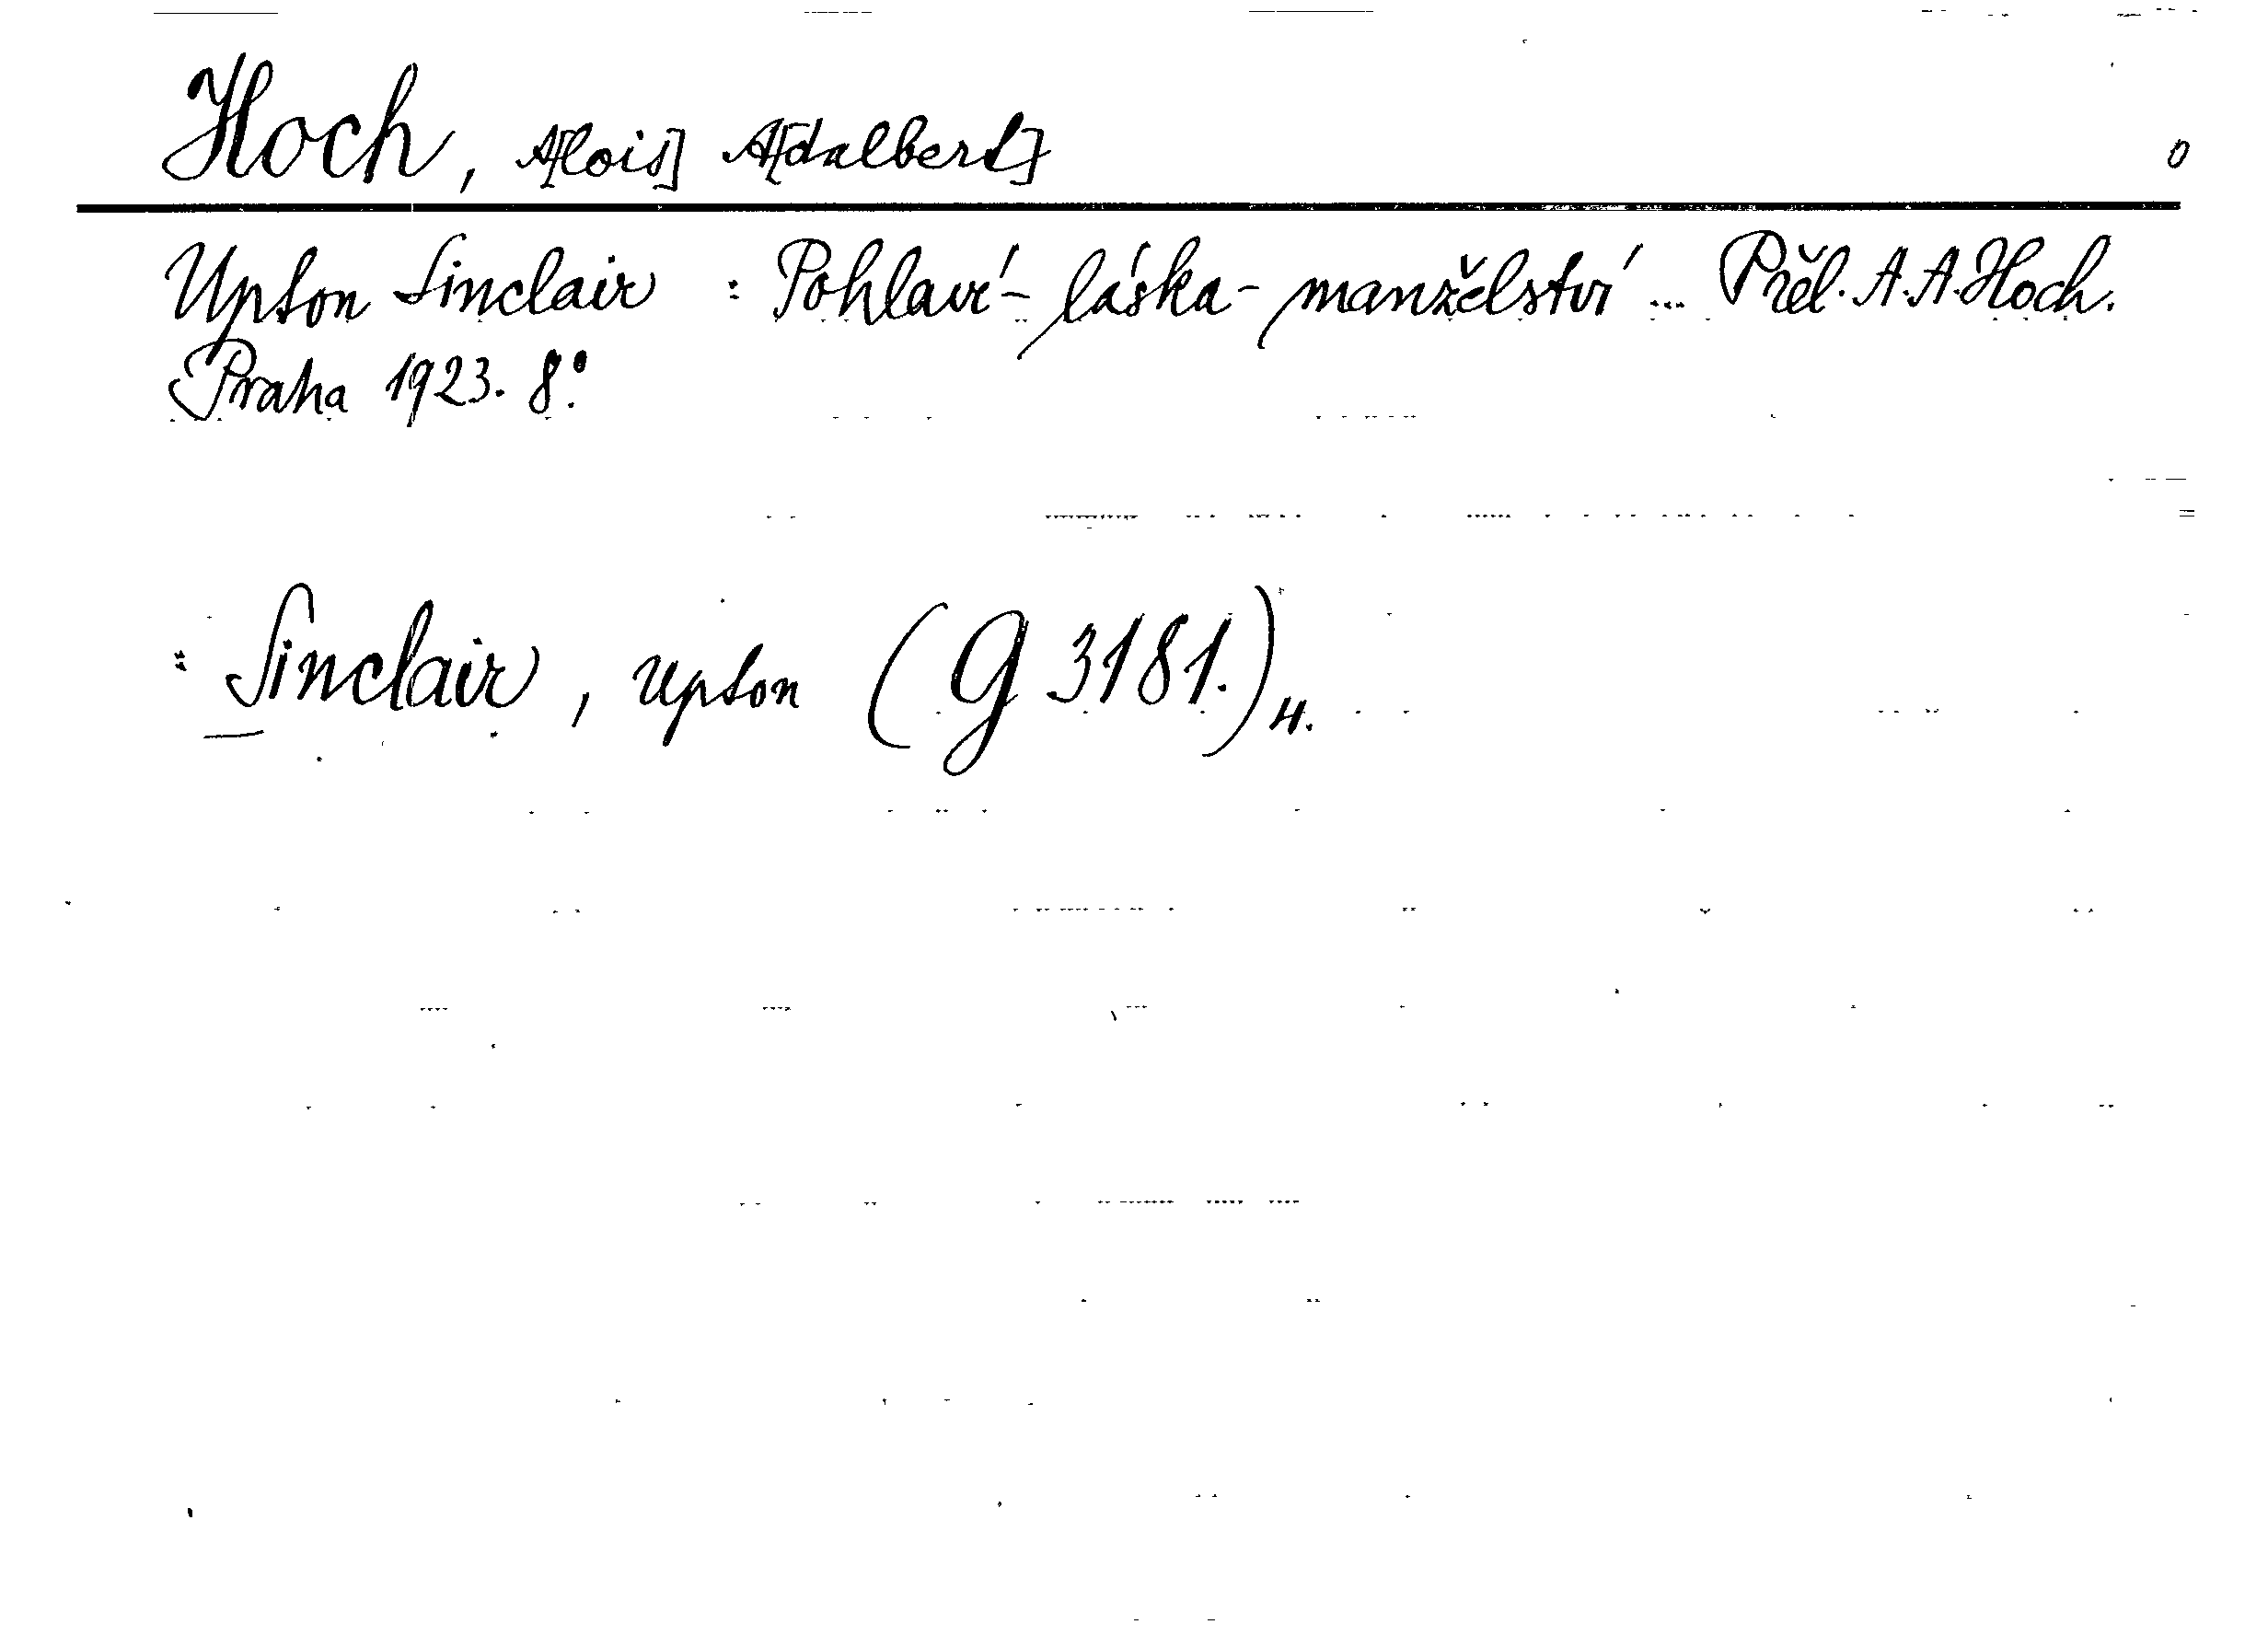 Hoch, A[lois] A[dalbert] 0
Upton Sinclair : Pohlaví - láska - manželství ... Přel. A. A. Hoch.
Praha 1923. 8º.
: Sinclair, Upton (G 3181.) H.